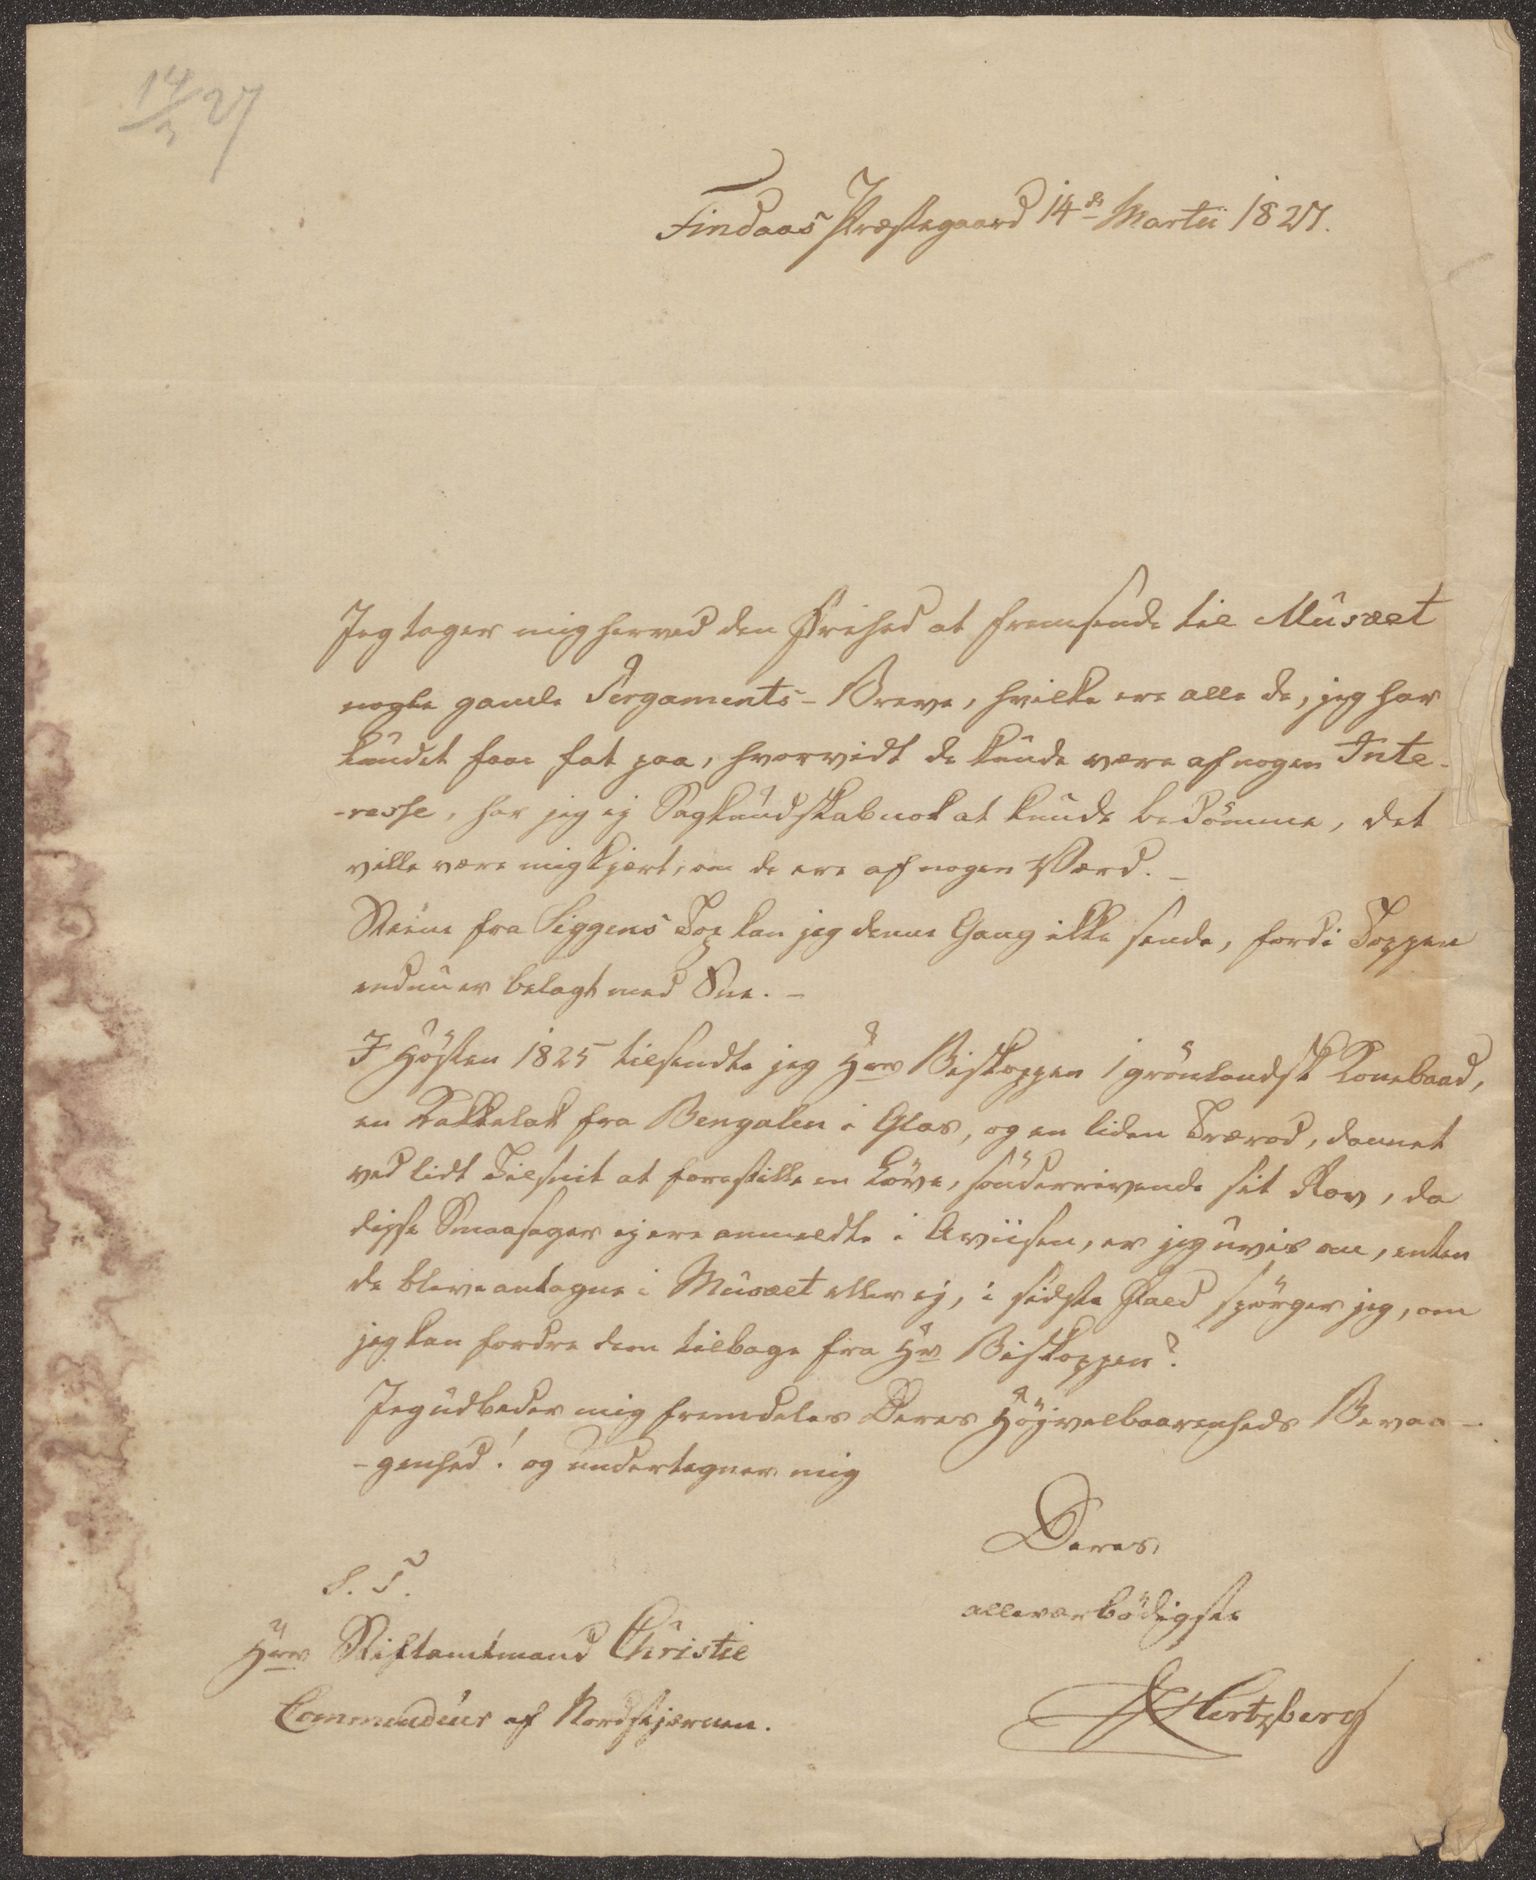 14/3 27
Findaas Præstegaard 14de Martii 1827.
Jeg tager mig herved den Frihed at fremsende til Musæet
nogle gamle Pergaments-Breve, hvilke ere alle de, jeg har
kundet faae fat paa, hvorvidt de kunde være af nogen Inte-
-resse, har jeg ej Sagkundskab nok at kunde bedömme, det
ville være mig kjært, om de ere af nogen Værd. -
Steene fra Siggens Top kan jeg denne Gang ikke sende, fordi Toppen
endnu er belagt med Snee. -
I Hösten 1825 tilsendte jeg Hrr Biskoppen 1 grönlandsk Konebaad,
en Kakkelak fra Bengalen i Glas, og en liden Trærod, dannet
ved lidt Tilsnit at forestille en Löve, sönderrivende sit Rov, da
disse Smaasager ej ere anmeldte i Aviisen, er jeg uvis om, enten
de bleve antagne i Musæet eller ej, i sidste Fald spörger jeg, om
jeg kan fordre dem tilbage fra Hr Biskoppen?
Jeg udbeder mig fremdeles Deres Höjvelbaarenheds Bevaa-
-genhed! og undertegner mig
Deres
allerærbödigste
Hertzberg
S. T.
Herr Stiftamtmand Christie
Commendeur af Nordstjernen.